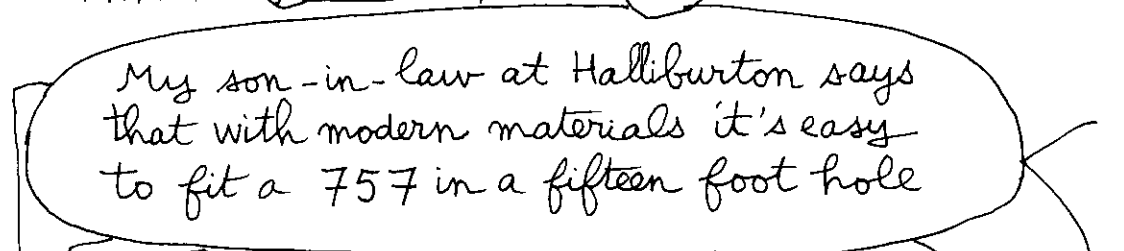 My son-in-law at Halliburton says
that with modern materials it's easy
to fit a 757 in a fifteen foot hole